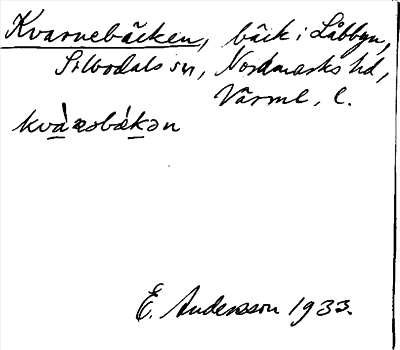 Kvarnebäcken, bäck i Låbbyn,
Silbodals sn, Nordmarks hd,
Värml. l.
kvà̱ɳəbæ̀ḵən
E. Andersson 1933.